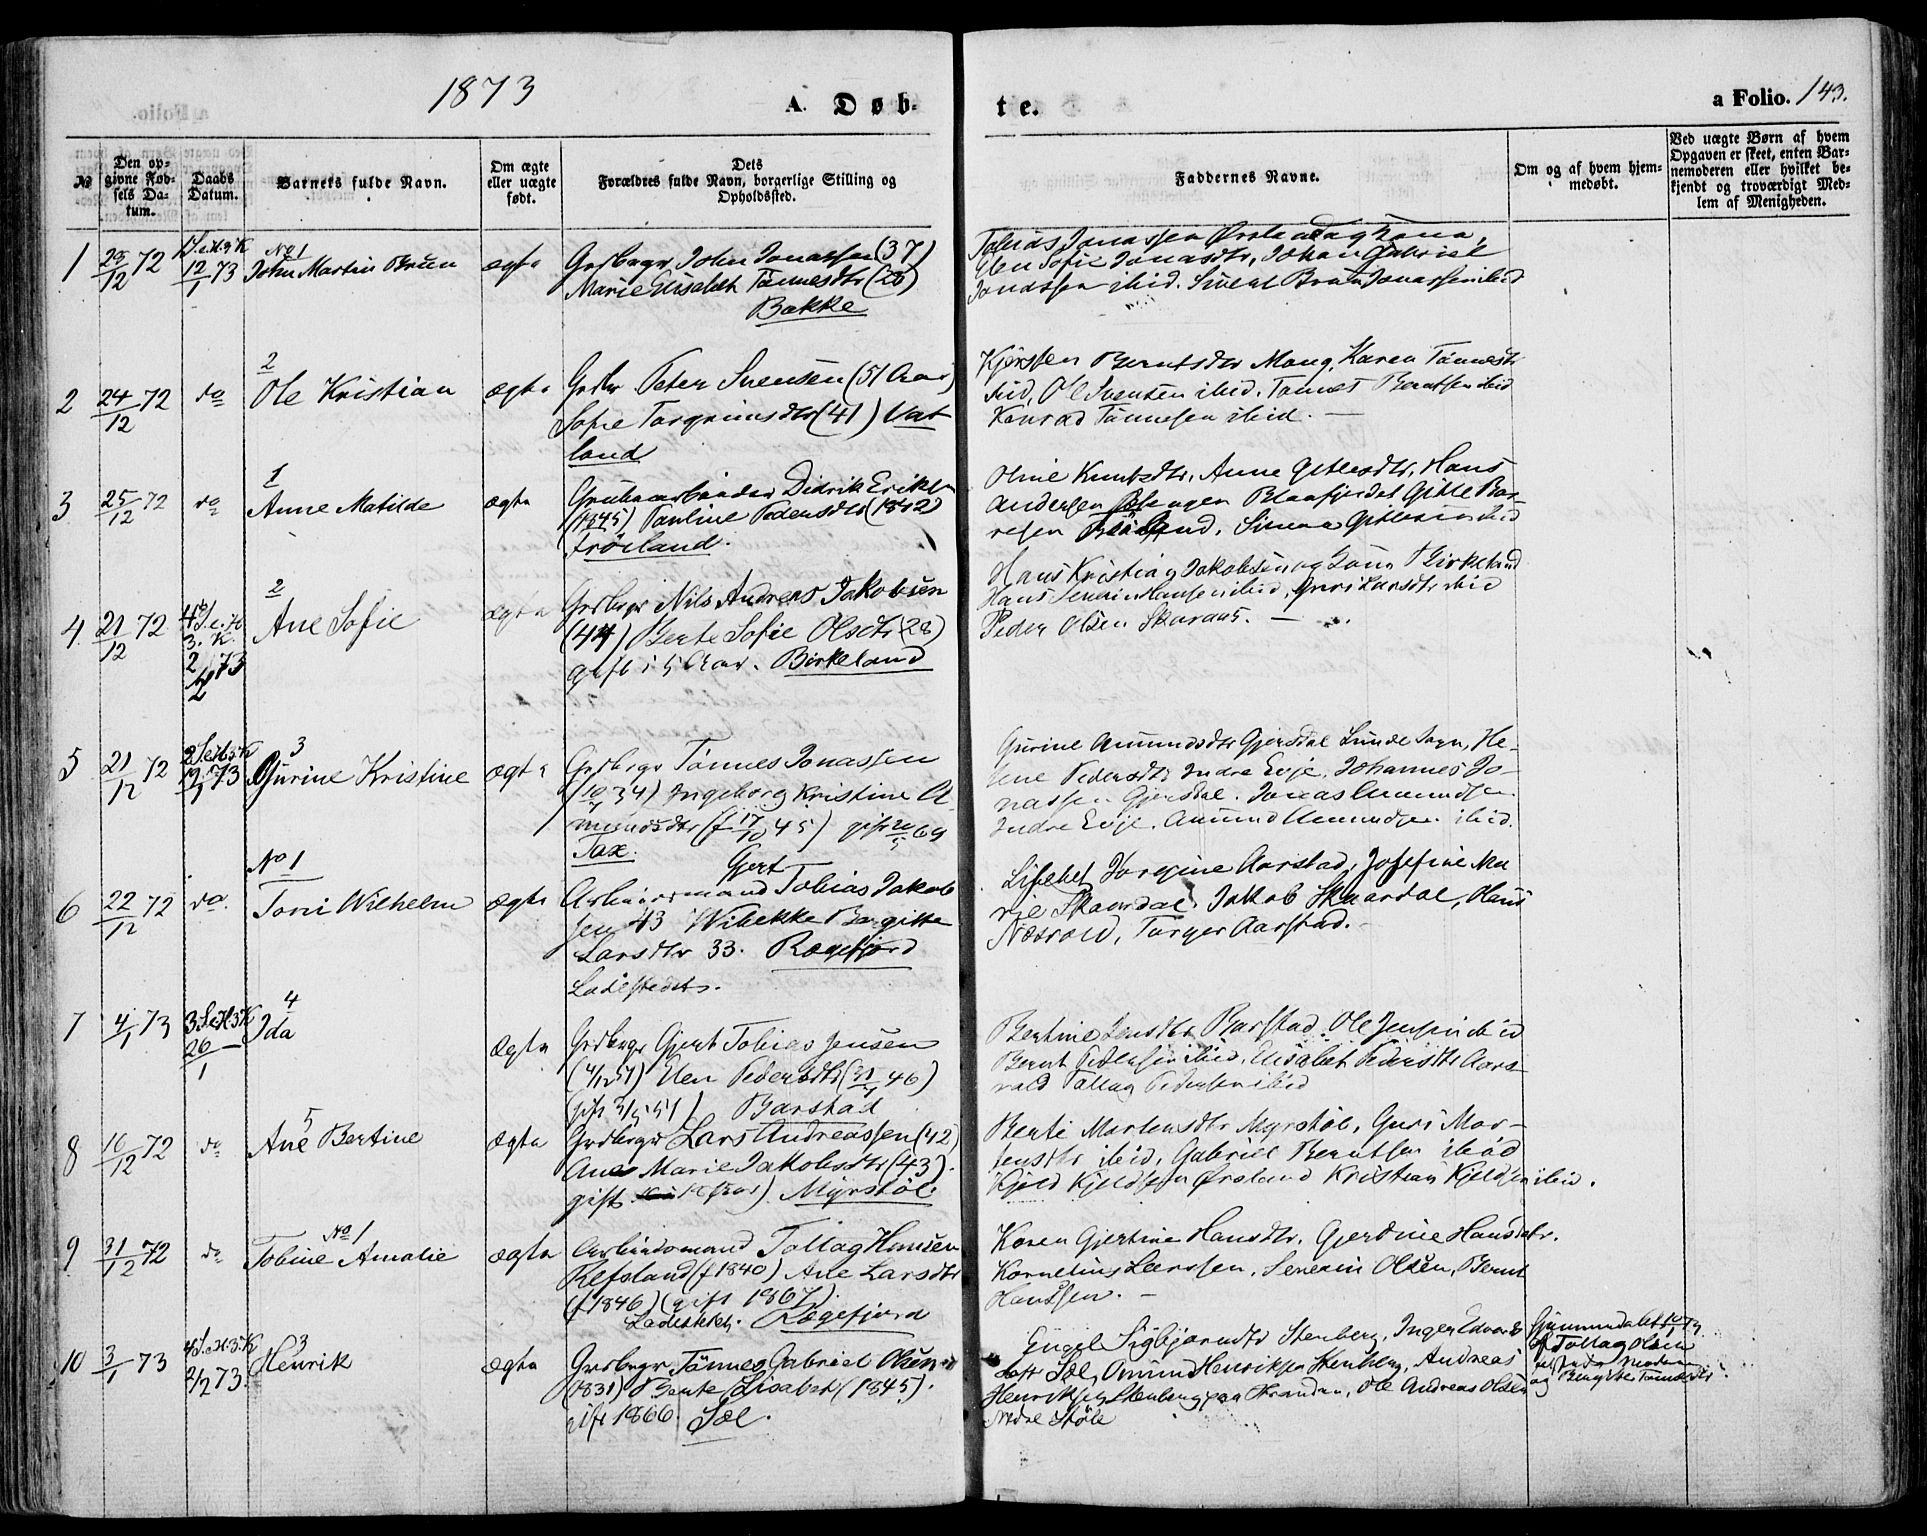 1873
A. Døb-
te.
a Folio. 143.
№
Den op-
givne Fød-
sels Da-
tum.
Daabs
Datum.
Barnets fulde Navn.
Om ægte
eller uægte
født.
Dets
Forældres fulde Navn, borgerlige Stilling og
Opholdssted.
Faddernes Navne.
Om og af hvem hjem-
medøbt.
Ved uægte Børn af hvem
Opgaven er skeet, enten Bar-
nemoderen eller hvilket be-
kjendt og troværdigt Med-
lem af Menigheden.
1 72 12/1 73 No 1
John Martin Brun ægte Grdbrgr John Jonassen (37)
Marie Elisabet Tönnesdtr (28)
Bakke
Tobias Jonassen
Elen Sofie Jonasdtr, Johan Gabriel
Jonassen ibid. Sivert Brun Jonassen ibid
2 24/12 72 do 2
Ole Kristian ægte Peter Svensen (51 Aar)
Sofie Torgrimsdtr (41) Vat-
land
Kjersten Berntsdtr Mong, Karen Tönnesdtr
ibid, Ole Svensen ibid. Tönnes Berntsen ibid
Konrad Tönnesen ibid. —
3 25/12 72 do 1
Anne Matilde ægte Grubearbeider Didrik Eriksen
(1845) Pauline Pedersdtr (1842)
Fröiland.
Oline Knutsdtr, Anne Gitlesdtr, Hans
Andersen Blaafjeldet Gitle Bar-
resen
4 21/12 72 2/2 73 2
Ane Sofie ægte Grdbrgr Nils Andreas Jakobsen
(44) Berte Sofie Olsdtr (28)
gift i 5 Aar. Birkeland
Hans Kristian Jakobsen Birkeland
Hans Severin Hansen ibid, Guri Larsdtr ibid
Peder Olsen Skaraas. —
5 21/12 72 19/1 73 3
Gurine Kristine ægte Grdbrgr Tönnes Jonassen
34) Ingeborg Kristine A-
mundsdtr (f 17/10 45) gift 69
Tax.
Gurine Amundsdtr Gjersdal Lunde Sogn, He-
lene Pedersdtr Indre Evje, Johannes Jo-
nassen Gjersdal. Jonas Amundsen
Indre Evje. Amund Amundsen ibid.
6 22/12 72 do. No 1
Toni Wilhelm ægte Gjert
Arbeidsmand Tobias Jakob-
sen 43 Wibekke Bergitte
Larsdtr 33. Rægefjord
Ladestedet.
Lisebet Jorgine Aarstad, Josefine Ma-
rie Skaardal. Jakob Skaardal, Hans
Næsvold, Torger Aarstad. —
7 4/1 73 3 S. e. H. 3 K
26/1 4
Ida Ægte Grdbrgr Gjert Tobias Jensen
Elen Pedersdtr (31/7 46)
Barstad
Bertine Jensdtr Barstad. Ole Jensen ibid
Bernt Pedersen ibid, Elisabet Pedersdtr Aars-
vold Tollag Pedersen ibid
8 10/12 72 do 5
Ane Bertine ægte Grdbrgr Lars Andreassen (42)
Ane Marie Jakobsdtr (43).
gift Aar). Myrstöl.
Berte Mortensdtr Myrstöl. Guri Mor-
tensdtr ibid, Gabriel Berntsen ibid
Kjeld Kjeldsen Örsland Kristian Kjeldsen ibid.
9 31/12 72 do No 1
Tobine Amalie ægte Arbeidsmand Tollag Hansen
Refsland (f 1840) Ane Larsdtr
(f 1846) (gift 1867)
Ladestedet. Rægefjord
Karen Gjertine Hansdtr. Gjertine Hansdtr.
Kornelius Larssen, Severin Olsen, Bernt
Hanssen. —
10 3/1 73 4 S. e. H. 3 K
2/2 73 3
Henrik ægte Grdbrgr Tönnes Gabriel Olsen
(1831) Berte Lisabet (1845).
gift 1866. Sæl.
Engel Sigbjørnsdtr Stenberg, Inger Edvards-
datt Sæl, Amund Henriksen Stenberg, Andreas
Henriksen Stenberg paa Stranden, Ole Andreas Olsen
Nedre Støle
af Tollag Olsen